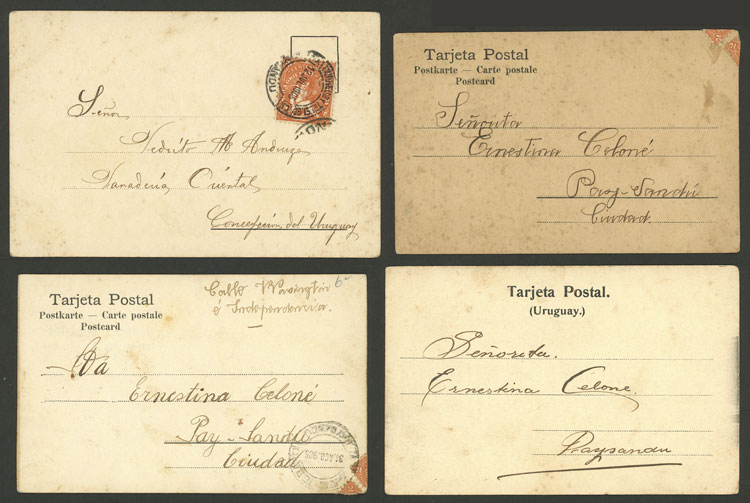 Señor
Pedrito M Andueza
Panaderia Oriental
Concepcion del Uruguay
Tarjeta Postal
Postkarte — Carte postale
Postcard
Señorita
Ernestina Celoné
Pay-Sandú
Ciudad.
Tarjeta Postal
Postkarte — Carte postale
Postcard
Calle
é Independencia.
6-
Ernestina Celoné
Pay-Sandú
Ciudad
Tarjeta Postal.
(Uruguay.)
Señorita.
Ernestina Celone.
Paysandu